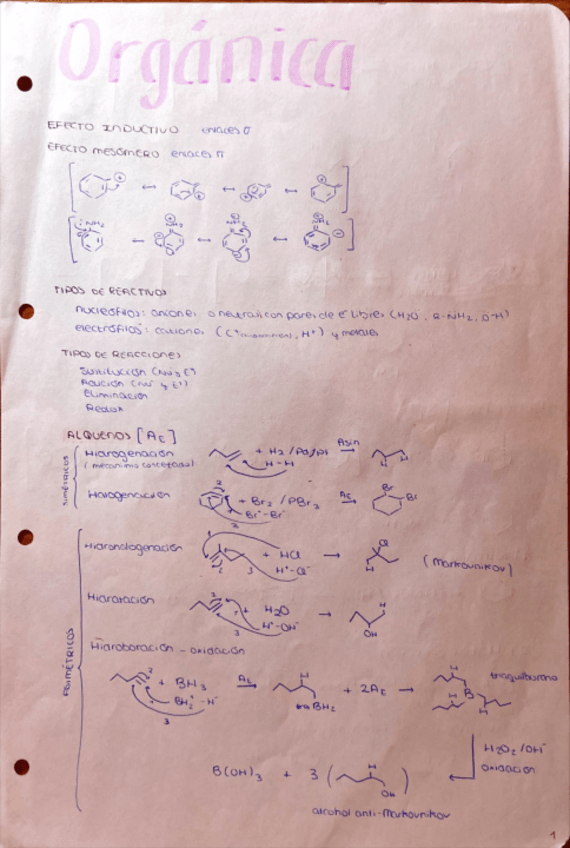 Orgánica
EFECTO INDUCTIVO enlaces σ
EFECTO MESÓMERO enlaces π
TIPOS DE REACTIVOS
nucleófilos: aniones o neutrales con pares de e⁻ libres (H2O, R-NH2, O-H)
electrófilos: cationes (C⁺, H⁺) y metales
TIPOS DE REACCIONES
Sustitución (Nu⁻ y E⁺)
Adición (Nu⁻ y E⁺)
Eliminación
Redox
ALQUENOS [AE]
SIMÉTRICOS
Hidrogenación + H2 /Pd/Pt Asin
(mecanismo concertado) H-H H H
Halogenación + Br2 / PBr3 AE Br Br
Br⁺-Br⁻
ASIMÉTRICOS
Hidrohalogenación + HCl → Cl H (Markovnikov)
H⁺-Cl⁻
Hidratación + H2O → H OH
H⁺-OH⁻
Hidroboración - oxidación
+ BH3 AE H BH2 + 2AE → B trialquilborano
BH2⁺-H⁻
H2O2 /OH⁻
oxidación
B(OH)3 + 3 ( H OH )
alcohol anti-Markovnikov
1